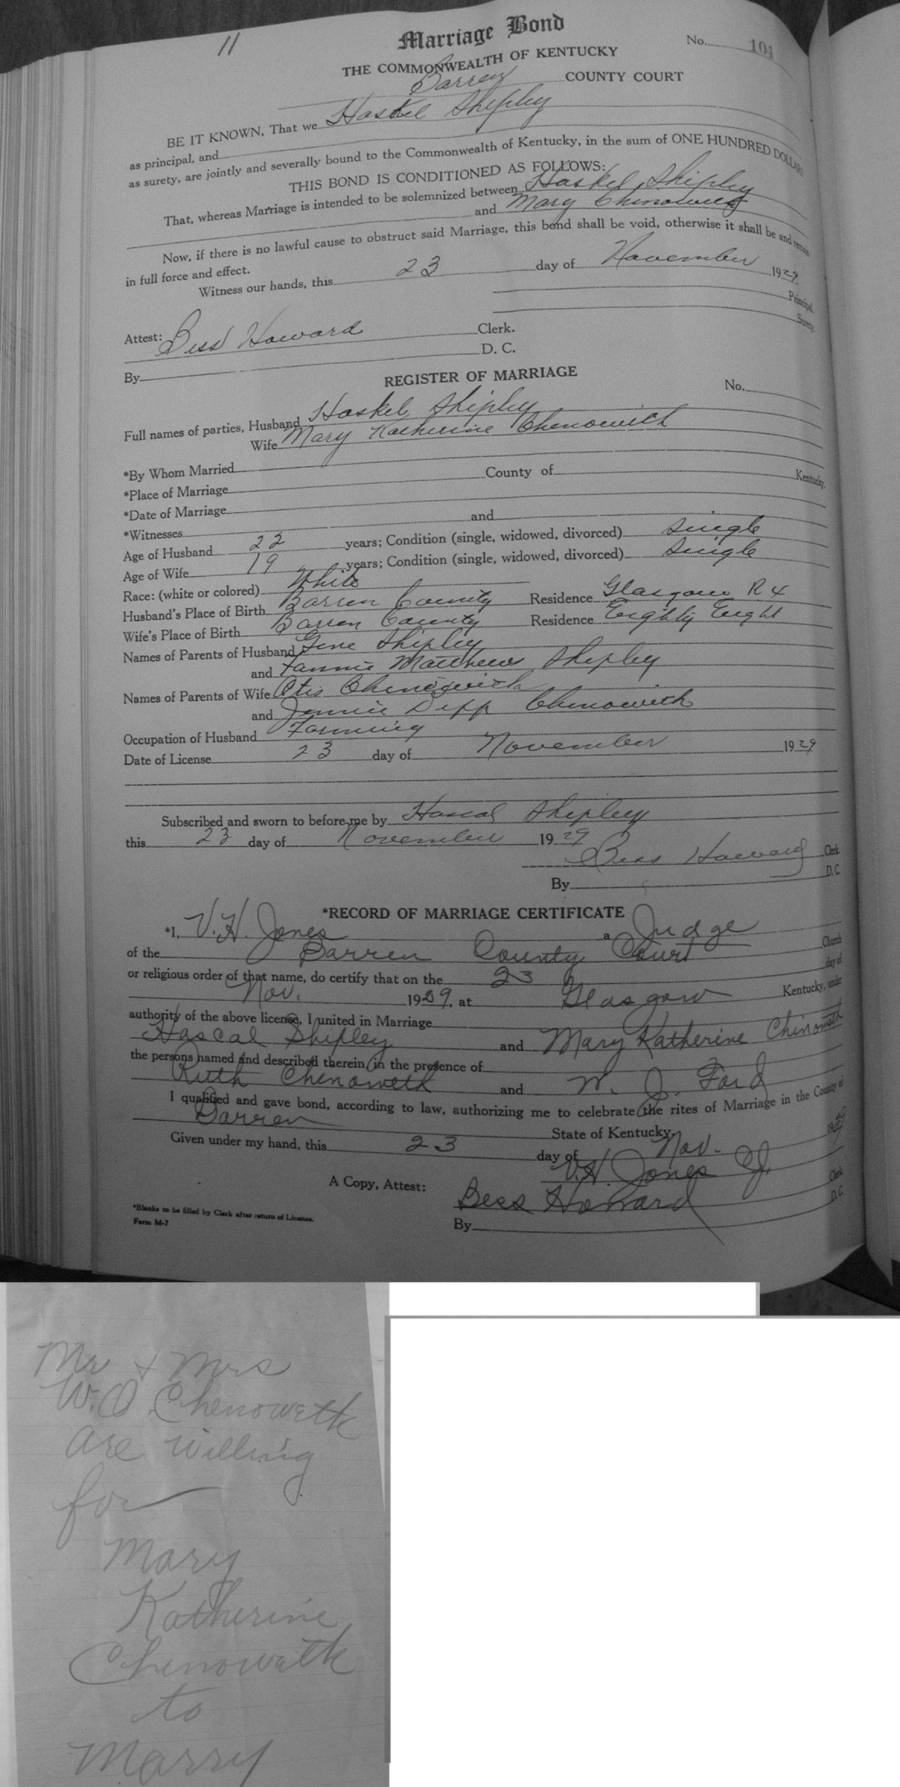 11
Marriage Bond
No. 101
THE COMMONWEALTH OF KENTUCKY
Barren COUNTY COURT
BE IT KNOWN, That we Haskel Shipley
as principal, and
as surety, are jointly and severally bound to the Commonwealth of Kentucky, in the sum of ONE HUNDRED DOLLARS
THIS BOND IS CONDITIONED AS FOLLOWS:
That, whereas Marriage is intended to be solemnized between Haskel Shipley
and Mary Chenoweth
Now, if there is no lawful cause to obstruct said Marriage, this bond shall be void, otherwise it shall be and remain
in full force and effect.
Witness our hands, this 23 day of November 1929
Principal.
Surety.
Attest: Bess Howard Clerk.
By D. C.
REGISTER OF MARRIAGE
No.
Full names of parties, Husband Haskel Shipley
Wife Mary Katherine Chenowith
*By Whom Married
*Place of Marriage County of Kentucky.
*Date of Marriage
*Witnesses and
Age of Husband 22 years; Condition (single, widowed, divorced) Single
Age of Wife 19 years; Condition (single, widowed, divorced) Single
Race: (white or colored) White
Husband's Place of Birth Barren County Residence Glasgow R 4
Wife's Place of Birth Barren County Residence Eighty Eight
Names of Parents of Husband Gene Shipley
and Fannie Matthews Shipley
Names of Parents of Wife Otis Chenowith
and Jennie Depp Chenowith
Occupation of Husband Farming
Date of License 23 day of November 1929
Subscribed and sworn to before me by Hascal Shipley
this 23 day of November 1929
Bess Howard Clerk
By D. C.
*RECORD OF MARRIAGE CERTIFICATE
*I, V. H. Jones a Judge
of the Barren County Court Church
or religious order of that name, do certify that on the 23 day of
Nov. 1929, at Glasgow Kentucky, under
authority of the above license, I united in Marriage
Hascal Shipley and Mary Katherine Chinoweth
the persons named and described therein, in the presence of
Ruth Chenoweth and W. J. Ford
I qualified and gave bond, according to law, authorizing me to celebrate the rites of Marriage in the County of
Barren State of Kentucky.
Given under my hand, this 23 day of Nov. 1929
V. H. Jones C J.
A Copy, Attest: Bess Howard Clerk
By D. C.
*Blanks to be filled by Clerk after return of License.
Form M-7
Mr + Mrs
W. O. Chenoweth
are willing
for
Mary
Katherine
Chenoweth
to
Marry